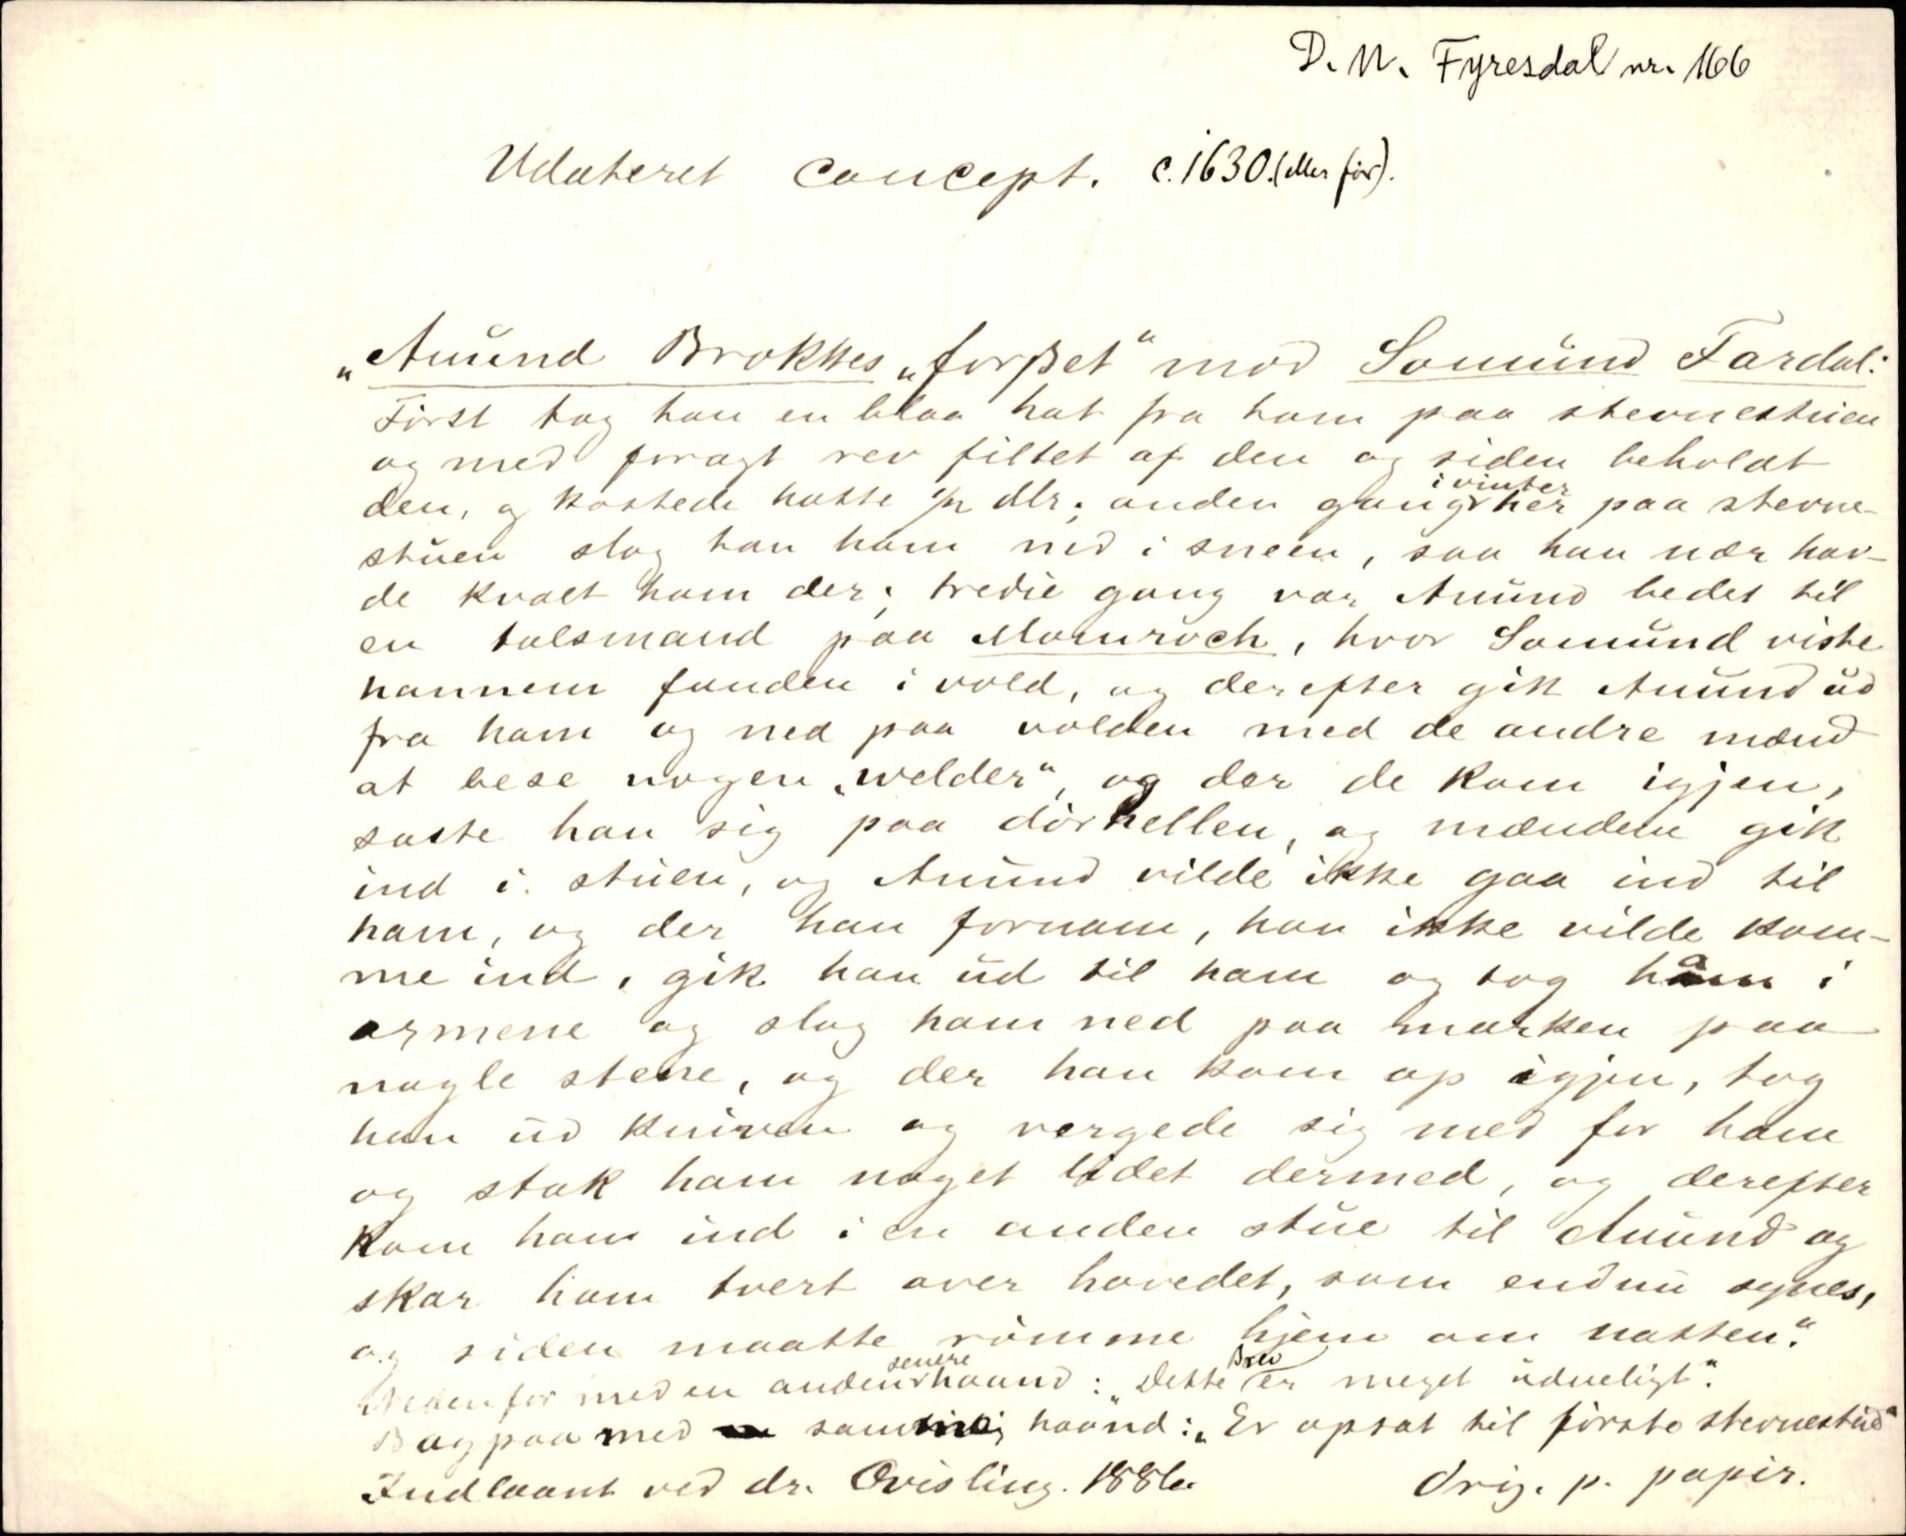 D. N. Fyresdal nr. 166
Udateret concept. c. 1630. (eller før).
„Auund Brokkes „forßet“ mod Somund Fardal:
Först tog han en blaa hat fra ham paa stevnestuen
og med foragt rev filtet af den og siden beholdt
den, og kostede hatte ½ dlr; anden gang i vinter her paa stevne-
stuen slog han ham ned i sneen, saa han nær hav-
de kvalt ham der; tredie gang var Auund bedet til
en talsmand paa Momrúch, hvor Somund viste
hannem fanden i vold, og derefter gik Auund ud
fra ham og ned paa volden med de andre mænd
at bese nogen „welder“, og der de kom igjen,
satte han sig paa dörhellen, og mændene gik
ind i stuen, og Auund vilde ikke gaa ind til
ham, og der han fornam, han ikke vilde kom-
me ind, gik han ud til ham og tog ham i
armene og slog ham ned paa marken paa
nogle stene, og der han kom op igjen, tog
han ud kniven og vergede sig med for ham
og stak ham noget lidet dermed, og derefter
kom ham ind i en anden stue til Auund og
skar ham tvert over hovedet, som endnu synes,
og siden maatte römme hjem om natten“.
Nedenfor med en anden senere haand: „Dette Brev er meget udueligt“.
Bagpaa med samtidig haand: „Er opsat til förste stevnestud“
Indlaant ved dr. Qvisling. 1886. Orig. p. papir.